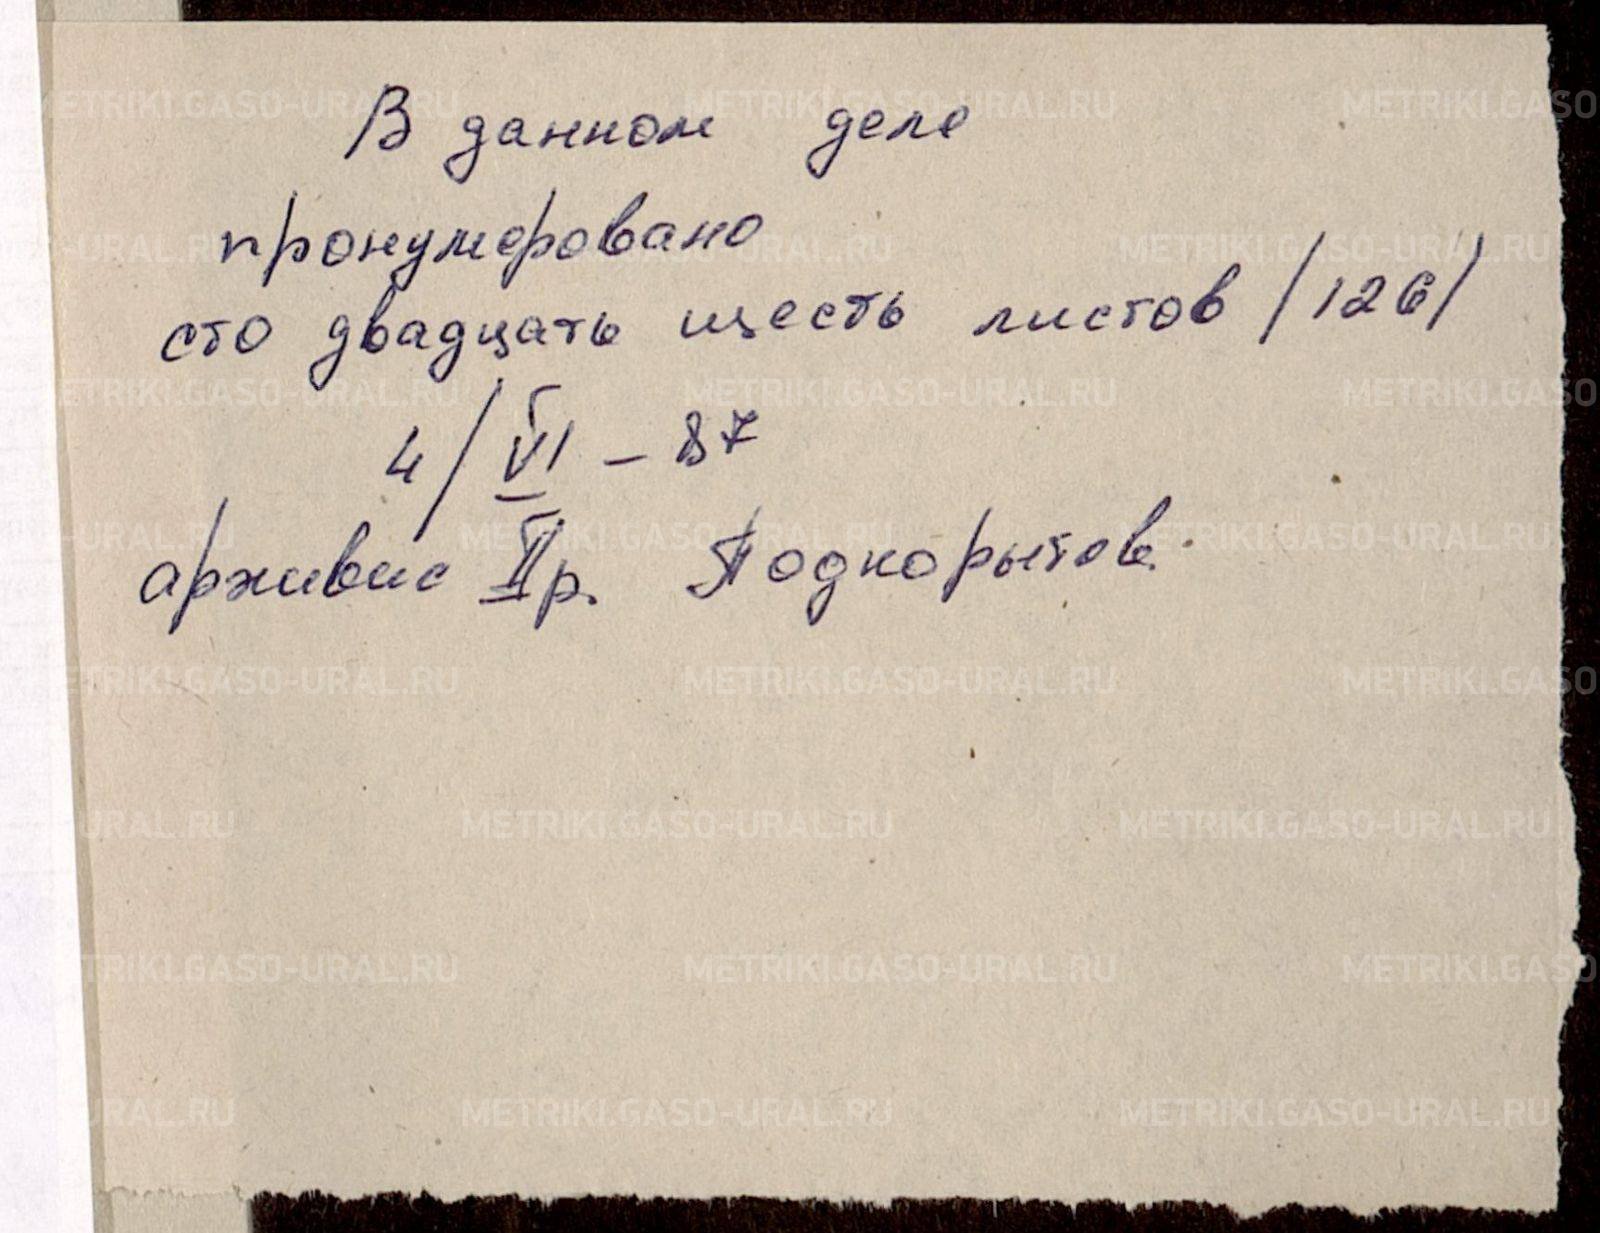 В данном деле
пронумеровано
сто двадцать шесть листов /126/
4/VI – 87
архивис II р. Подкорытов.
METRIKI.GASO-URAL.RU